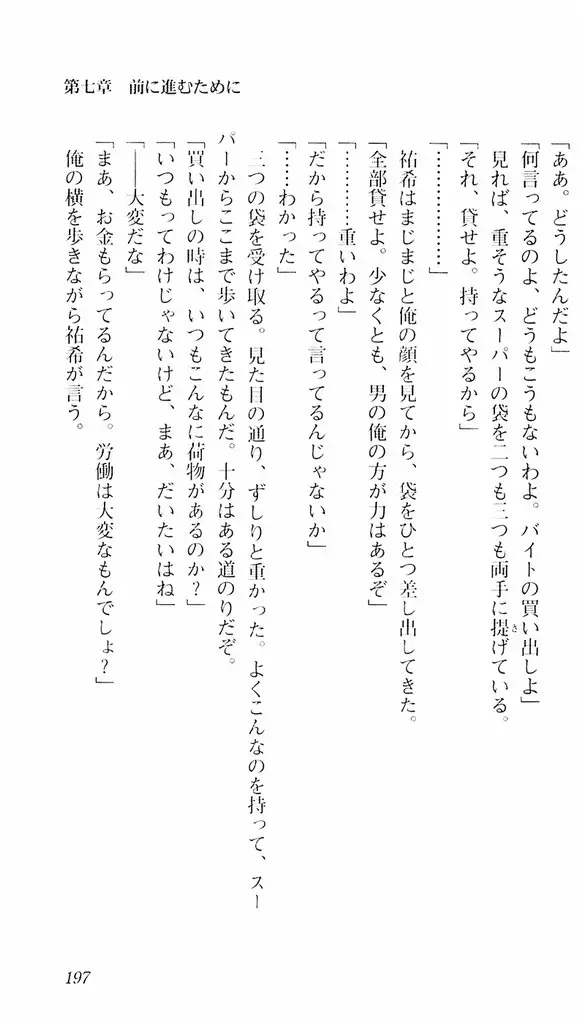 第七章　前に進むために
「ああ。どうしたんだよ」
「何言ってるのよ、どうもこうもないわよ。バイトの買い出しよ」
見れば、重そうなスーパーの袋を二つも三つも両手に提げている。
さ
「それ、貸せよ。持ってやるから」
「………………」
祐希はまじまじと俺の顔を見てから、袋をひとつ差し出してきた。
「全部貸せよ。少なくとも、男の俺の方が力はあるぞ」
「…………重いわよ」
「だから持ってやるって言ってるんじゃないか」
「……わかった」
三つの袋を受け取る。見た目の通り、ずしりと重かった。よくこんなのを持って、スー
パーからここまで歩いてきたもんだ。十分はある道のりだぞ。
「買い出しの時は、いつもこんなに荷物があるのか？」
「いつもってわけじゃないけど、まあ、だいたいはね」
「――大変だな」
「まあ、お金もらってるんだから。労働は大変なもんでしょ？」
俺の横を歩きながら祐希が言う。
197